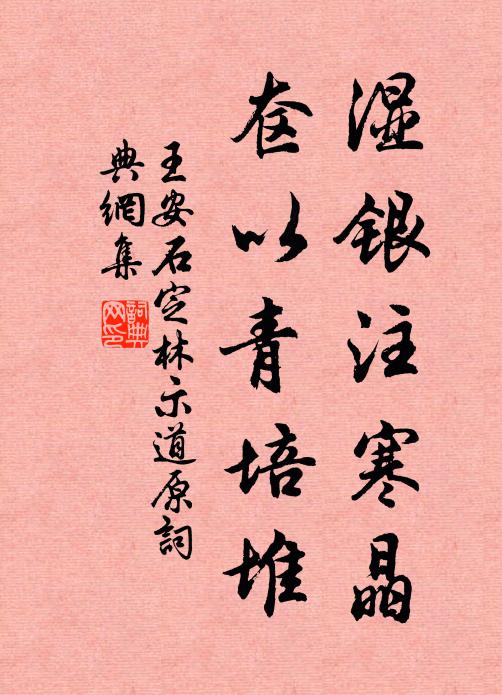 湿银注寒晶
奁以青培堆
王安石定林示道原詞
典網集
詞典
网印